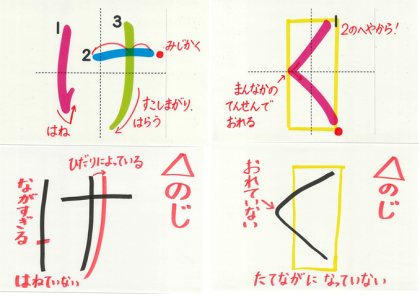 1
2
3
みじかく
はね
すこしまがり、
はらう
1
2のへやから!
まんなかの
てんせんで
おれる
ひだりによっている
ながすぎる
はねていない
△のじ
おれていない
△のじ
たてながになっていない